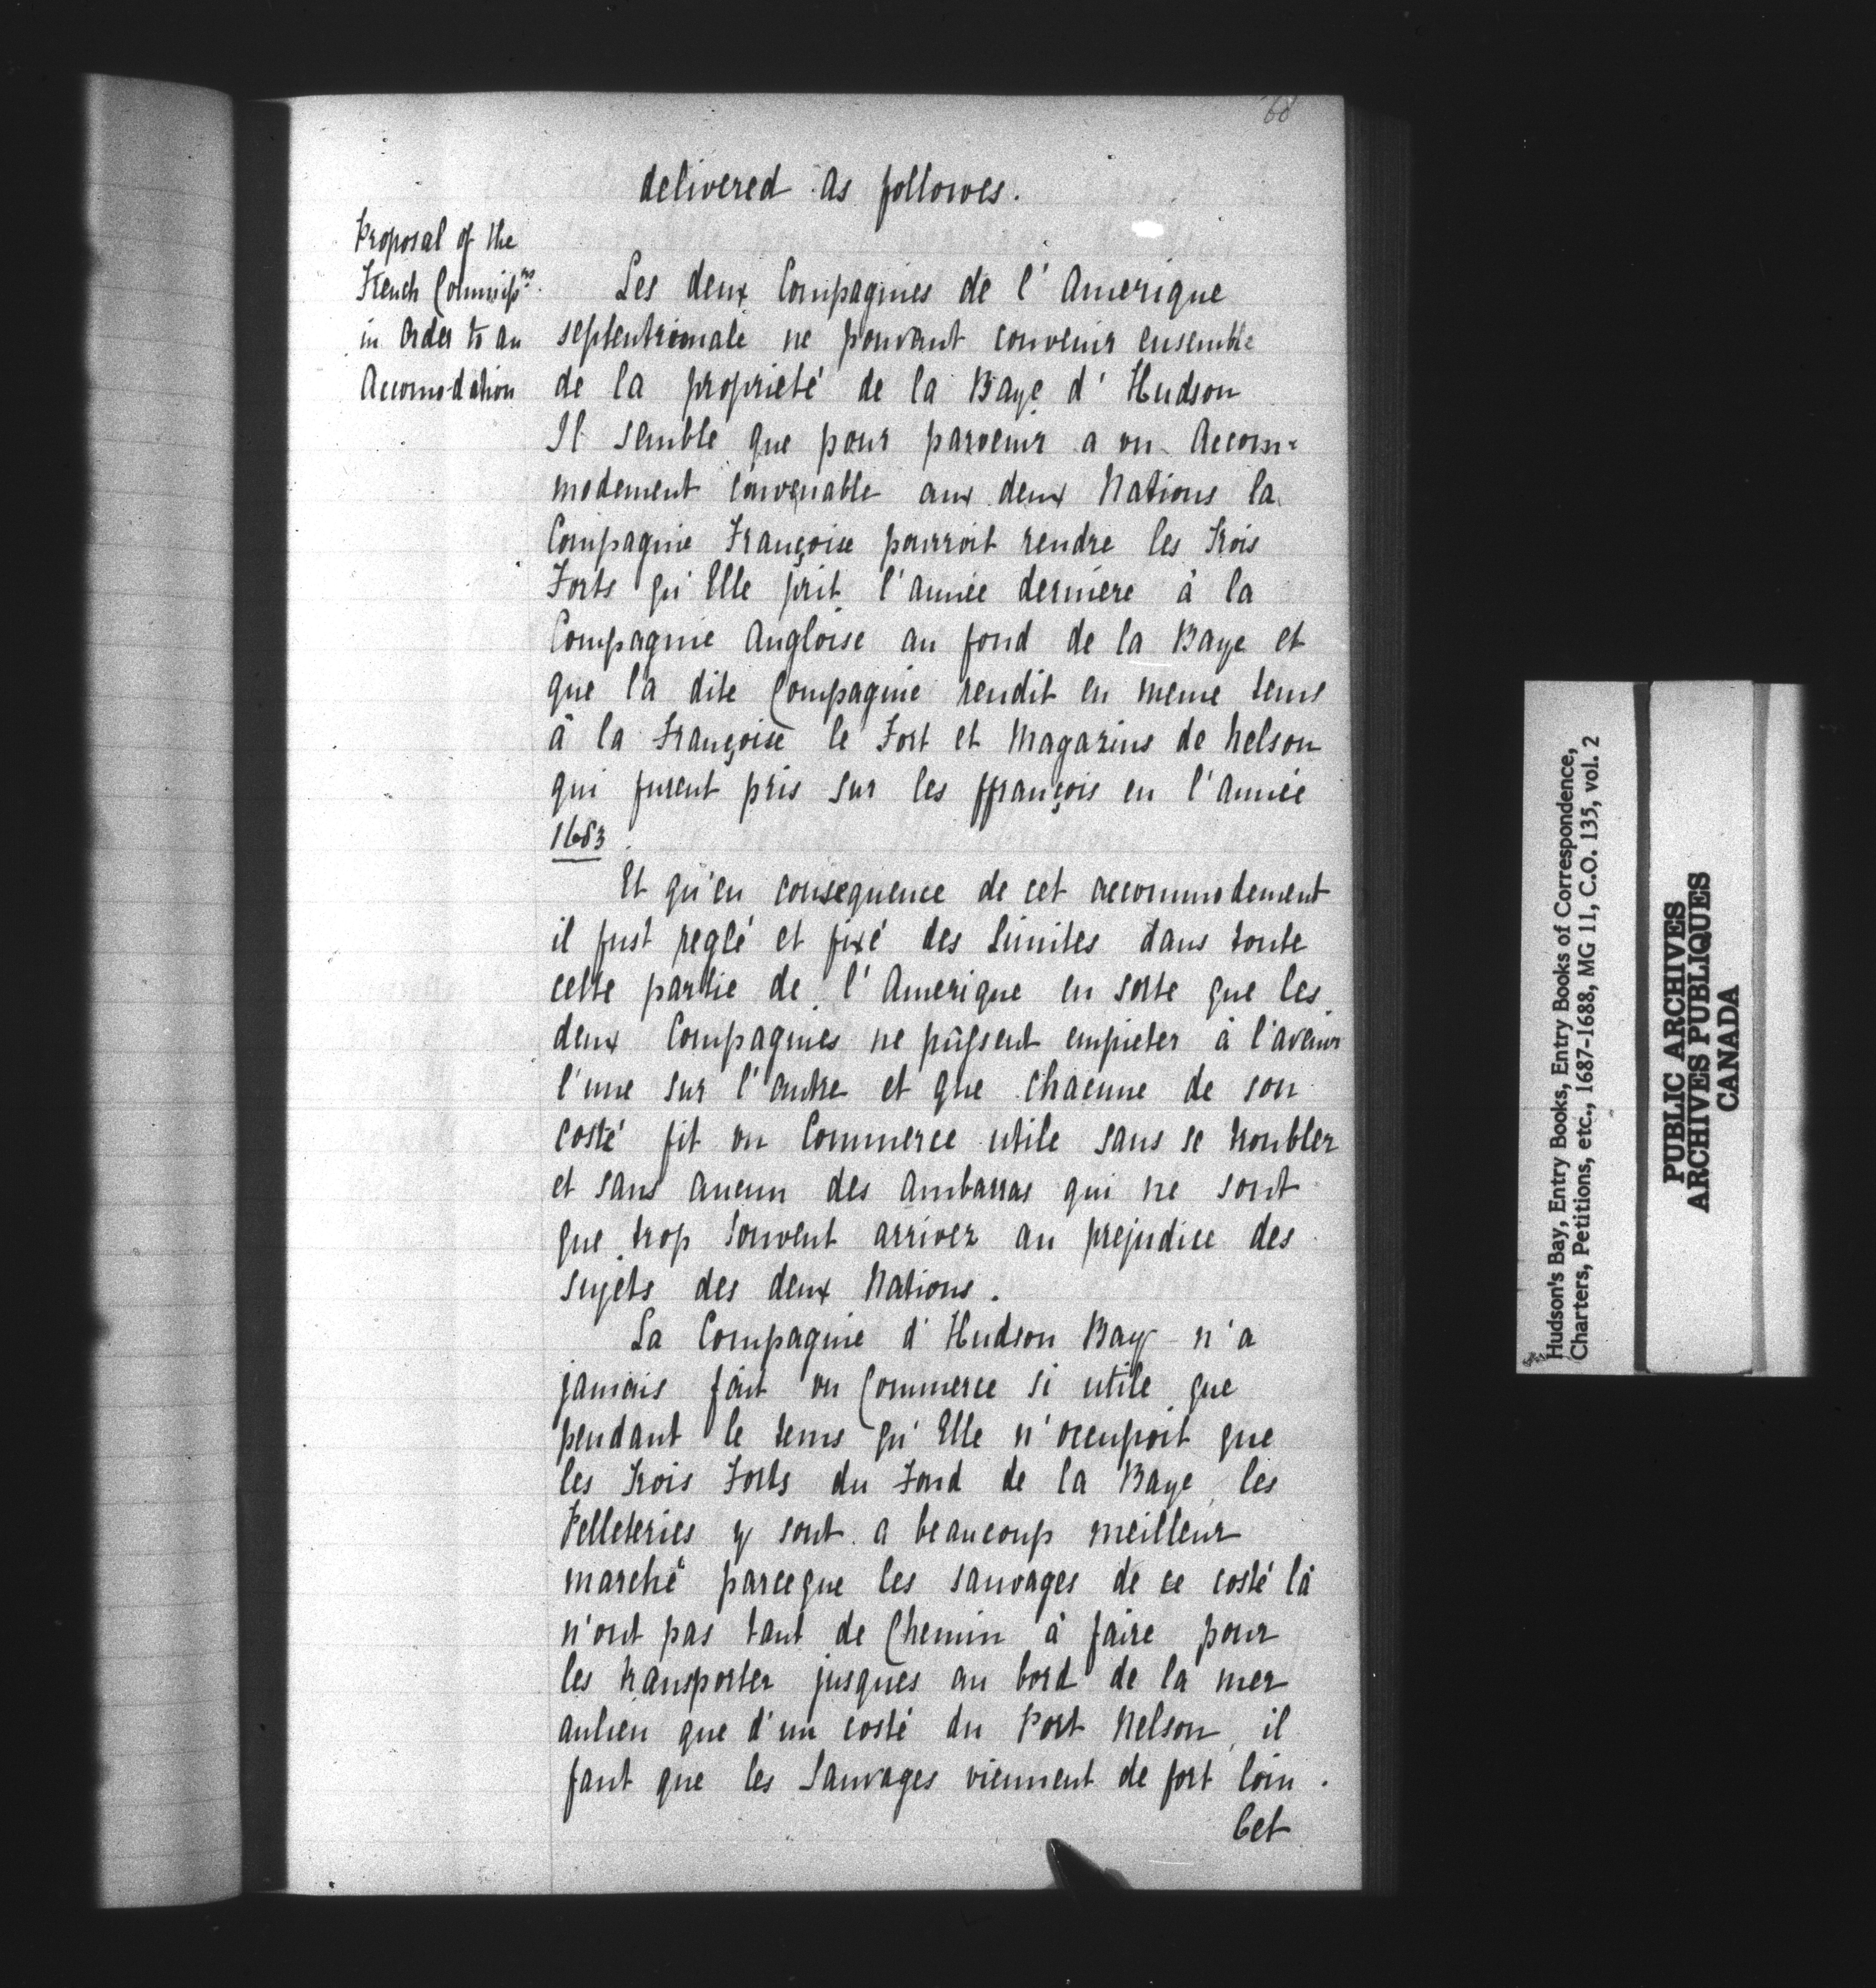 68
delivered as followes.
Proposal of the
French Commissrs.
in Order to an
Accomodation
Les deux Compagnies de l'Amerique
septentrionale ne pouvant convenir ensemble
de la proprieté de la Baye d'Hudson
Il semble que pour parvenir a un Accom=
modement convenable aux deux Nations la
Compagnie Françoise pourroit rendre les Trois
Forts qu'Elle prit l'année derniere à la
Compagnie Angloise au fond de la Baye et
que la dite Compagnie rendit en meme tems
à la Françoise le Fort et Magazins de Nelson
qui furent pris sur les ffrançois en l'année
1683.
Et qu'en consequence de cet accommodement
il fust reglé et fixé des Limites dans toute
cette partie de l'Amerique en sorte que les
deux Compagnies ne pûssent empieter à l'avenir
l'une sur l'autre et que chacune de son
costé fit un Commerce utile sans se troubler
et sans aucun des Ambarras qui ne sont
que trop souvent arrivez au prejudice des
sujets des deux Nations.
La Compagnie d'Hudson Bay n'a
jamais fait un Commerce si utile que
pendant le tems qu'Elle n'occupoit que
les Trois Forts du Fond de la Baye, les
Pelleteries y sont a beaucoup meilleur
marché parceque les sauvages de ce costé là
n'ont pas tant de Chemin à faire pour
les transporter jusques au bord de la mer
aulieu que d'un costé du Port Nelson, il
faut que les Sauvages viennent de fort loin.
Cet
Hudson's Bay, Entry Books, Entry Books of Correspondence,
Charters, Petitions, etc., 1687-1688, MG 11, C.O. 135, vol. 2
PUBLIC ARCHIVES
ARCHIVES PUBLIQUES
CANADA